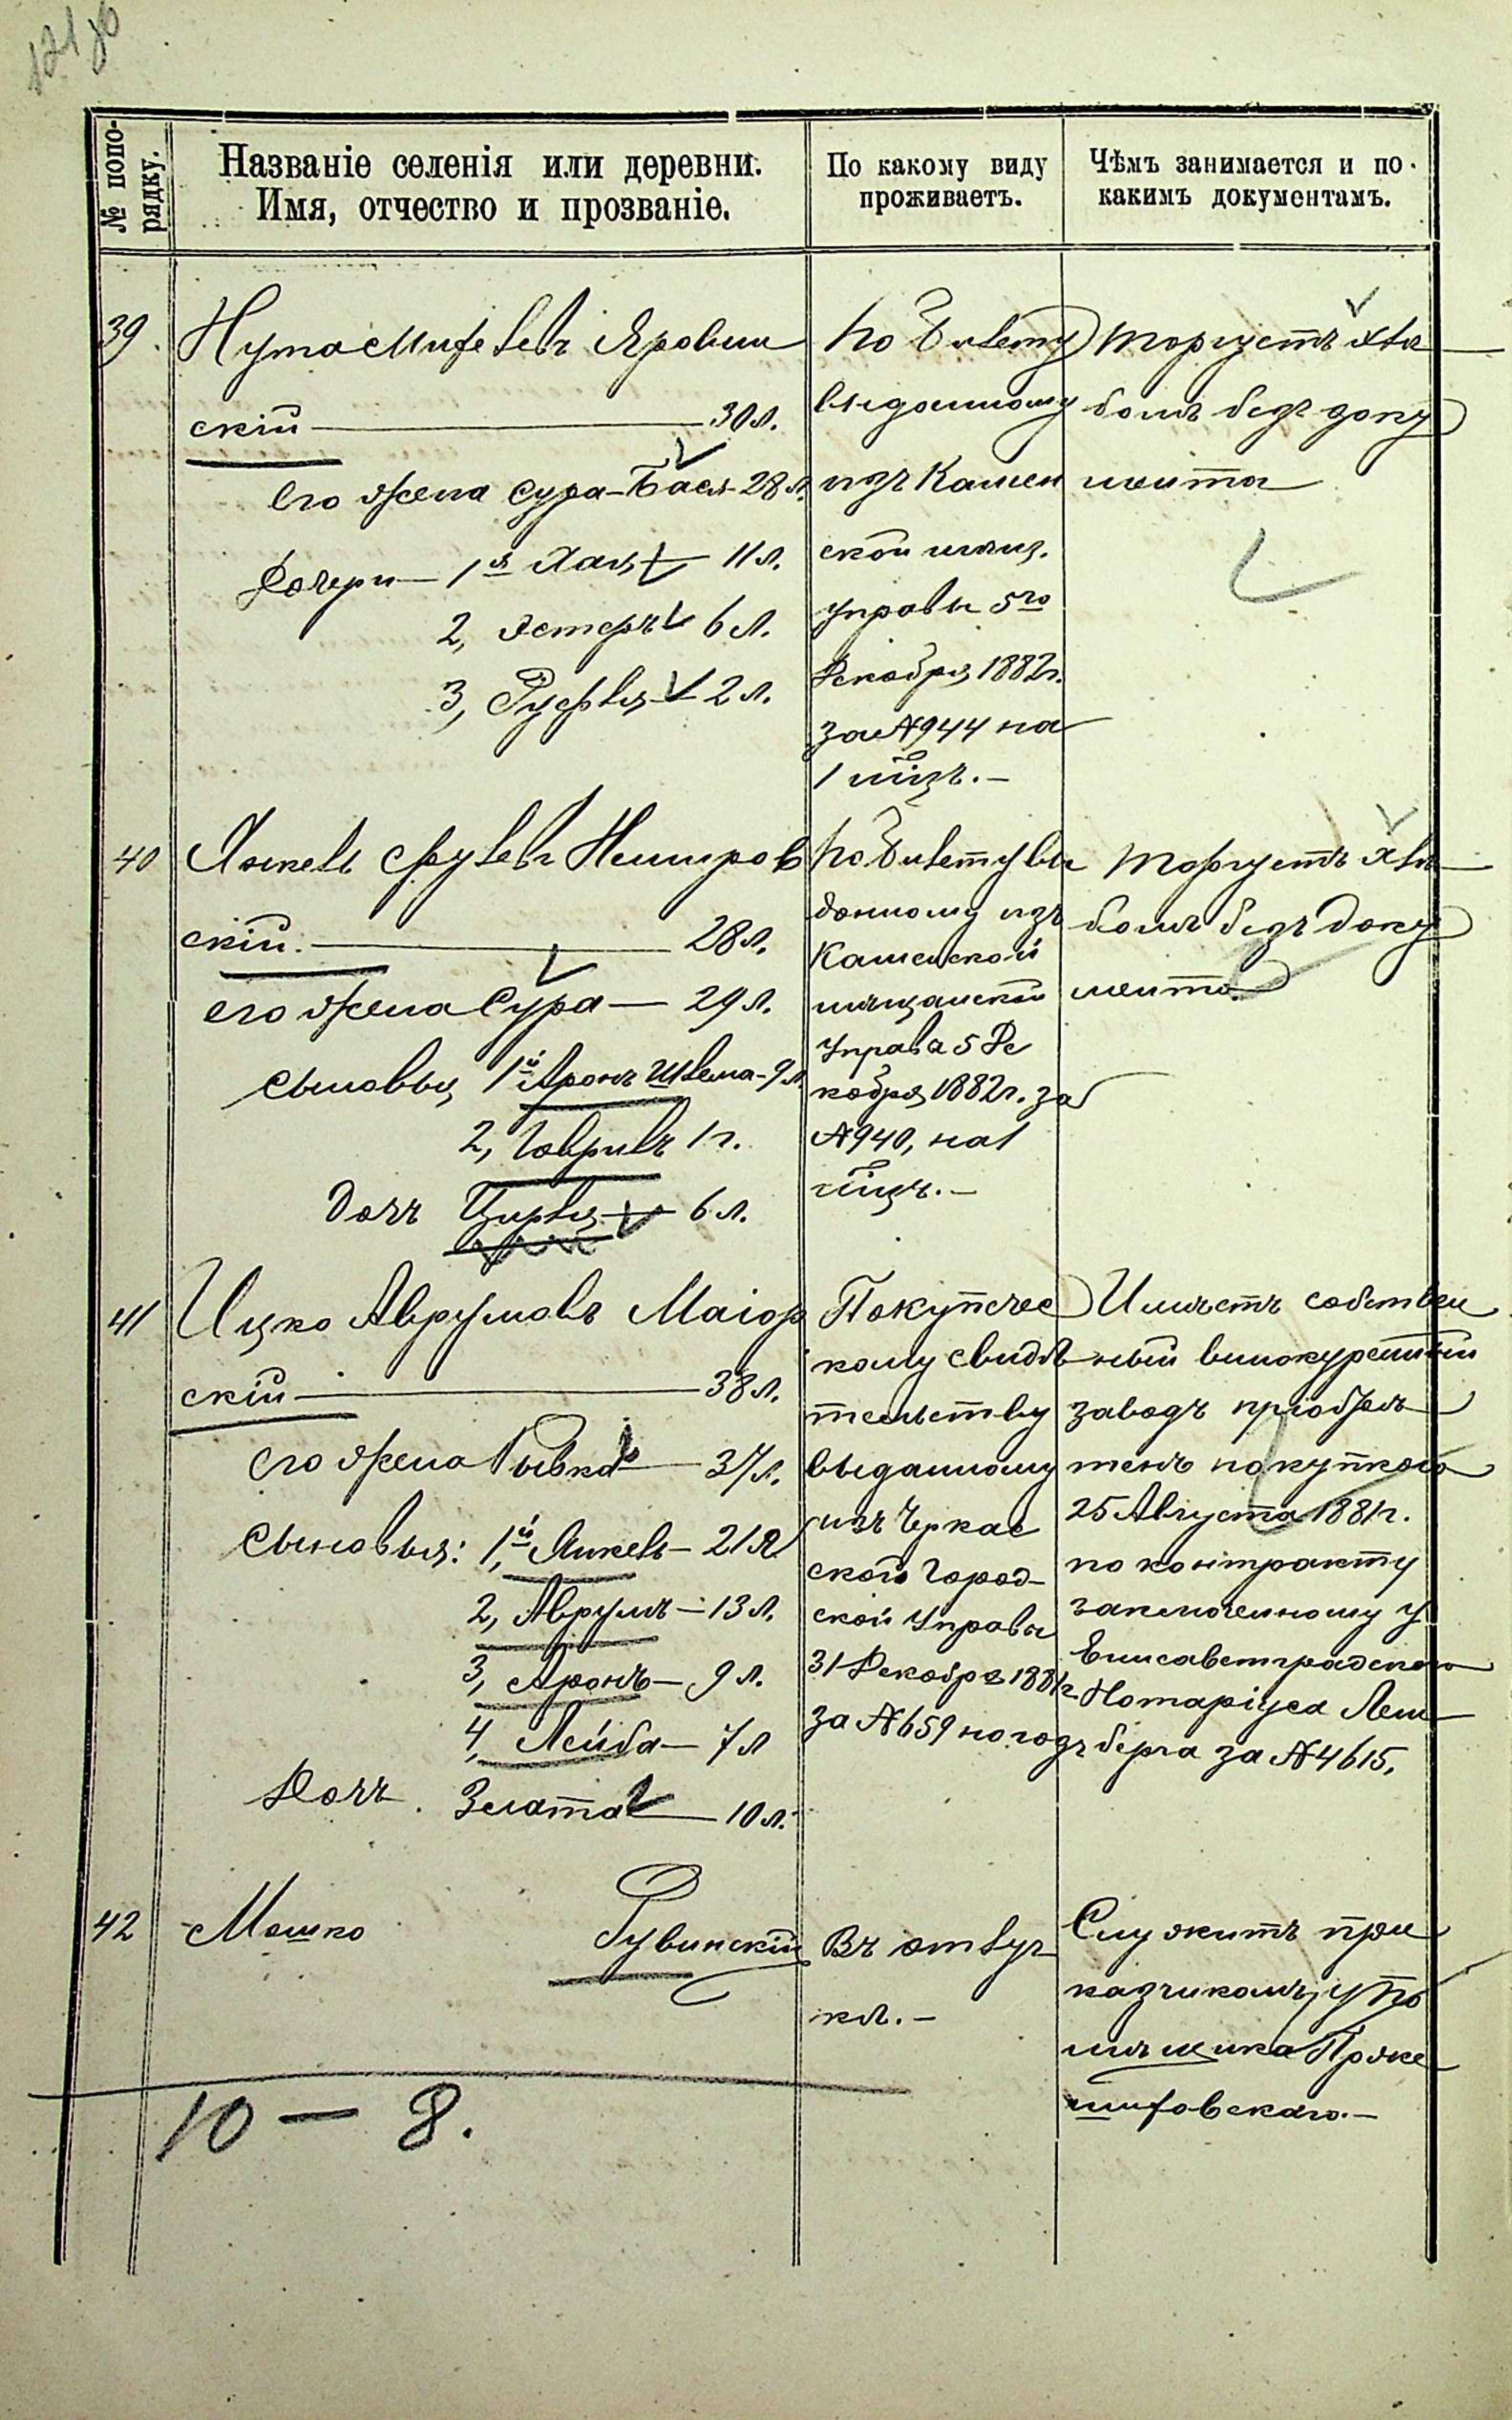 121 об
№ попо-
рядку.
Названіе селенія или деревни.
Имя, отчество и прозваніе.
По какому виду
проживаетъ.
Чѣмъ занимается и по
какимъ документамъ.
39.
Нута Мифелевъ Яровин
скій — 30 л.
Его жена Сура-Бася 28 л.
Дочери — 1я Хая — 11 л.
2, Эстеръ 6 л.
3, Рухля — 2 л.
По билету
выданному
изъ Камен
ской мѣщ.
управы 5го
Декабря 1882 г.
за № 944 на
1 мѣц. —
Торгуетъ хлѣ
бомъ безъ доку
мента
40
Янкель Срулевъ Немиров
скій. — 28 л.
его жена Сура — 29 л.
Сыновья 1й Аронъ Шлема — 9 л.
2, Гаврилъ 1 г.
Дочь Цирля — 6 л.
По билету вы
данному изъ
Каменской
мѣщанской
Управы 5 Де
кабря 1882 г. за
№ 940, на 1
мѣц. —
Торгуетъ хлѣ
бомъ безъ доку
мента.
41
Ицко Аврумовъ Маіор
скій — 38 л.
Его жена Ривка — 37 л.
Сыновья: 1й Янкель — 21 л.
2, Аврумъ — 13 л.
3, Аронъ — 9 л.
4, Лейба — 7 л
Дочь. Злата — 10 л.
По купечес
кому свидѣ
тельству
выданному
изъ Черкас
ской Город-
ской Управы
31 Декабря 1881 г.
за № 659 на годъ
Имѣетъ собствен
ный винокуренный
заводъ пріобрѣ
тенъ покупкою
25 Августа 1881 г.
по контракту
заключенному у
Елисаветградскаго
Нотаріуса Лем
берга за № 4615.
42
Мошко Рувинскій
Въ отлуч
кѣ. —
Служитъ при
казчикомъ у по
мѣщика Пряже
10 — 8.